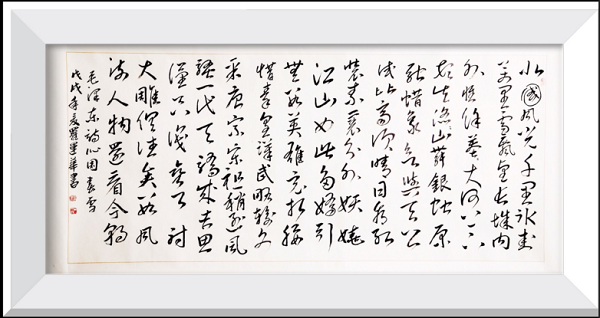 北國风光千里冰封
万里雪飘望长城内
外惟余莽莽大河上下
顿失滔滔山舞银蛇原
驰蜡象欲与天公
试比高须晴日看红
装素裹分外妖娆
江山如此多娇引
无数英雄竞折腰
惜秦皇汉武略输文
采唐宗宋祖稍逊风
骚一代天骄成吉思
汗只识弯弓射
大雕俱往矣数风
流人物还看今朝
毛泽东词沁园春雪
戊戌年夏